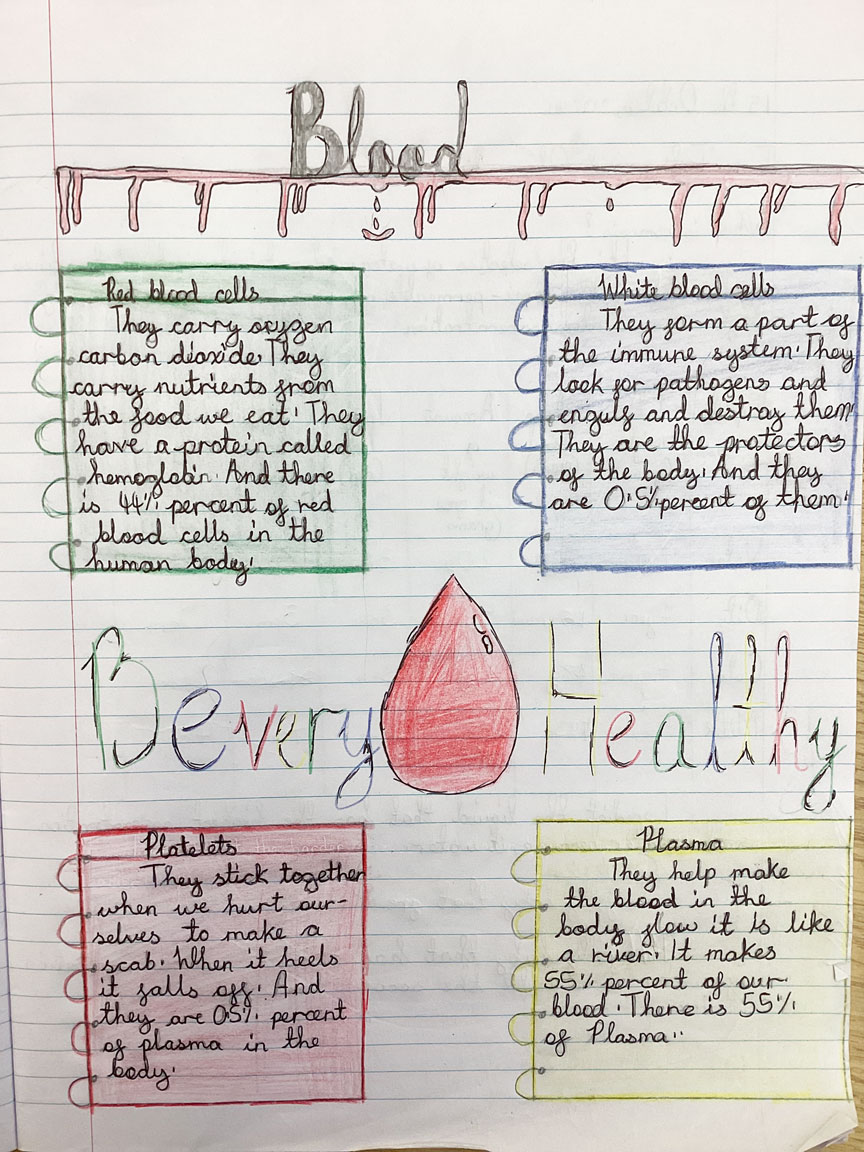 Blood
Red blood cells
They carry oxygen
carbon dioxide. They
carry nutrients from
the food we eat. They
have a protein called
hemoglobin. And there
is 44% percent of red
blood cells in the
human body.
White blood cells
They form a part of
the immune system. They
look for pathogens and
engulf and destroy them.
They are the protectors
of the body. And they
are 0.5% percent of them.
Be very Healthy
Platelets
They stick together
when we hurt our-
selves to make a
scab. When it heels
it falls off. And
they are 0.5% percent
of plasma in the
body.
Plasma
They help make
the blood in the
body flow it is like
a river. It makes
55% percent of our
blood. There is 55%
of Plasma..